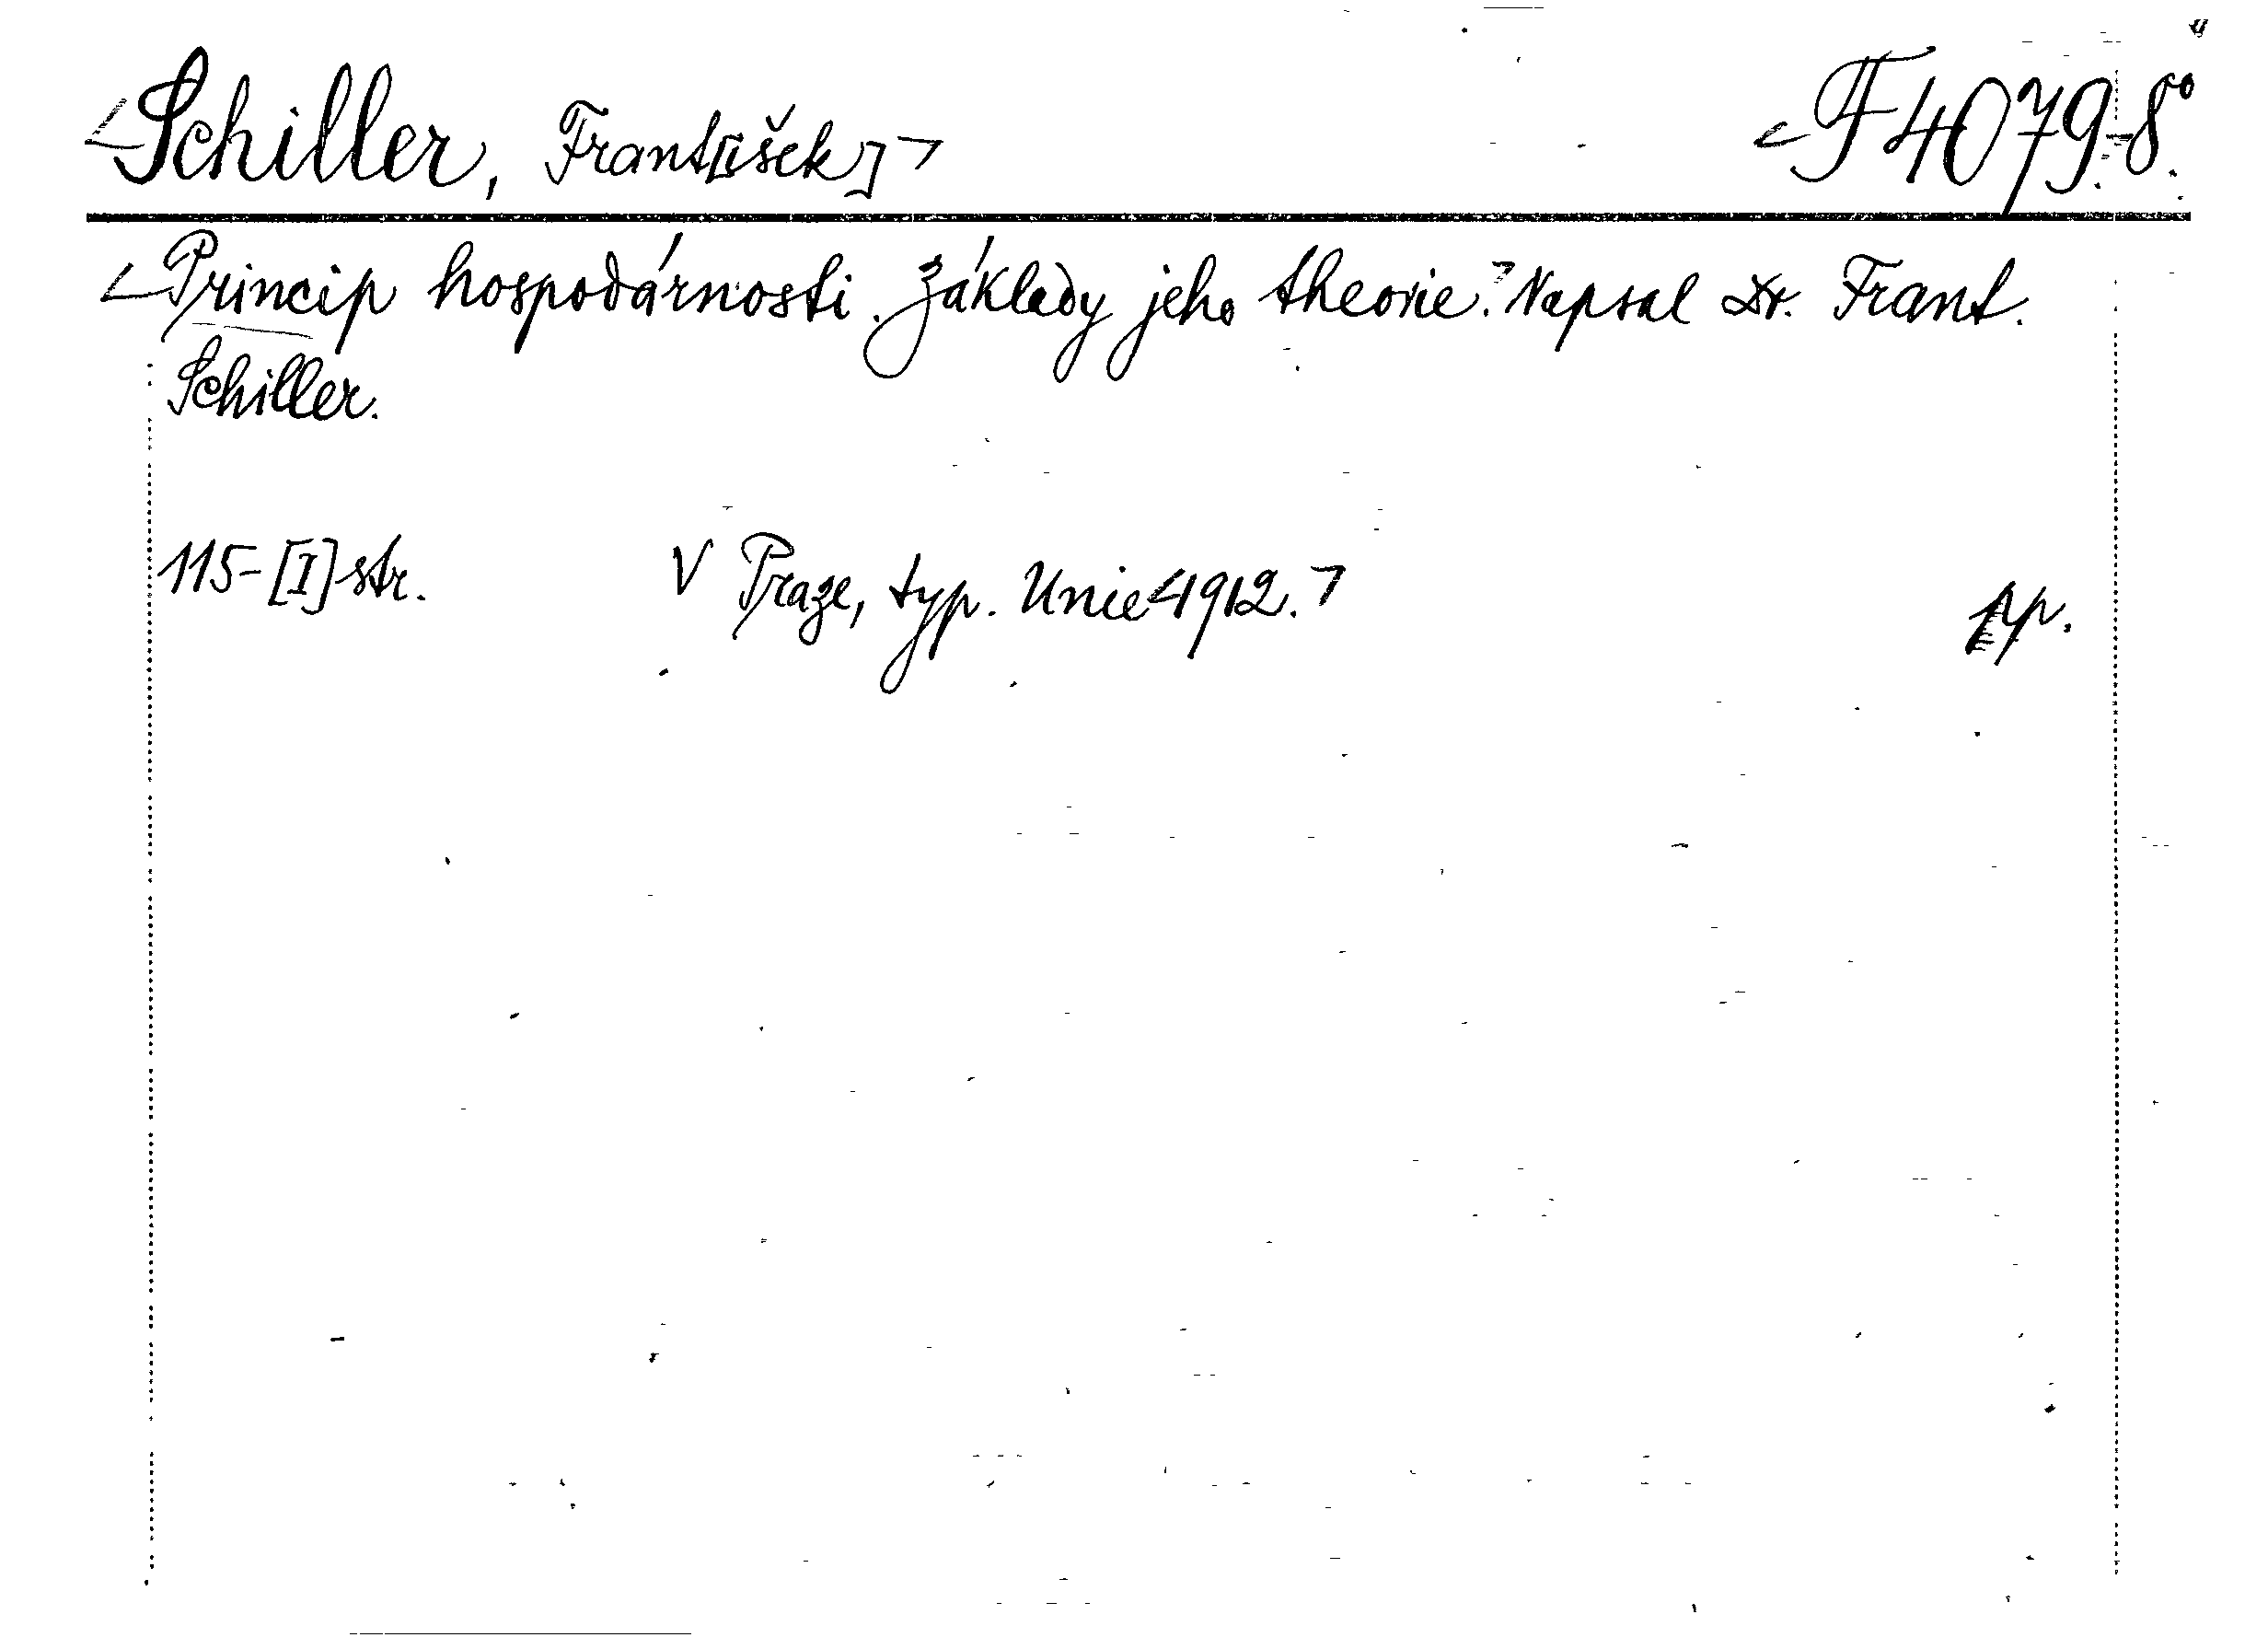 Schiller, Frant[išek] F 4079.-8°.
Princip hospodárnosti. Základy jeho theorie. Napsal Dr. Frant.
Schiller.
115-[I] str. V Praze, typ. Unie 1912. pp.